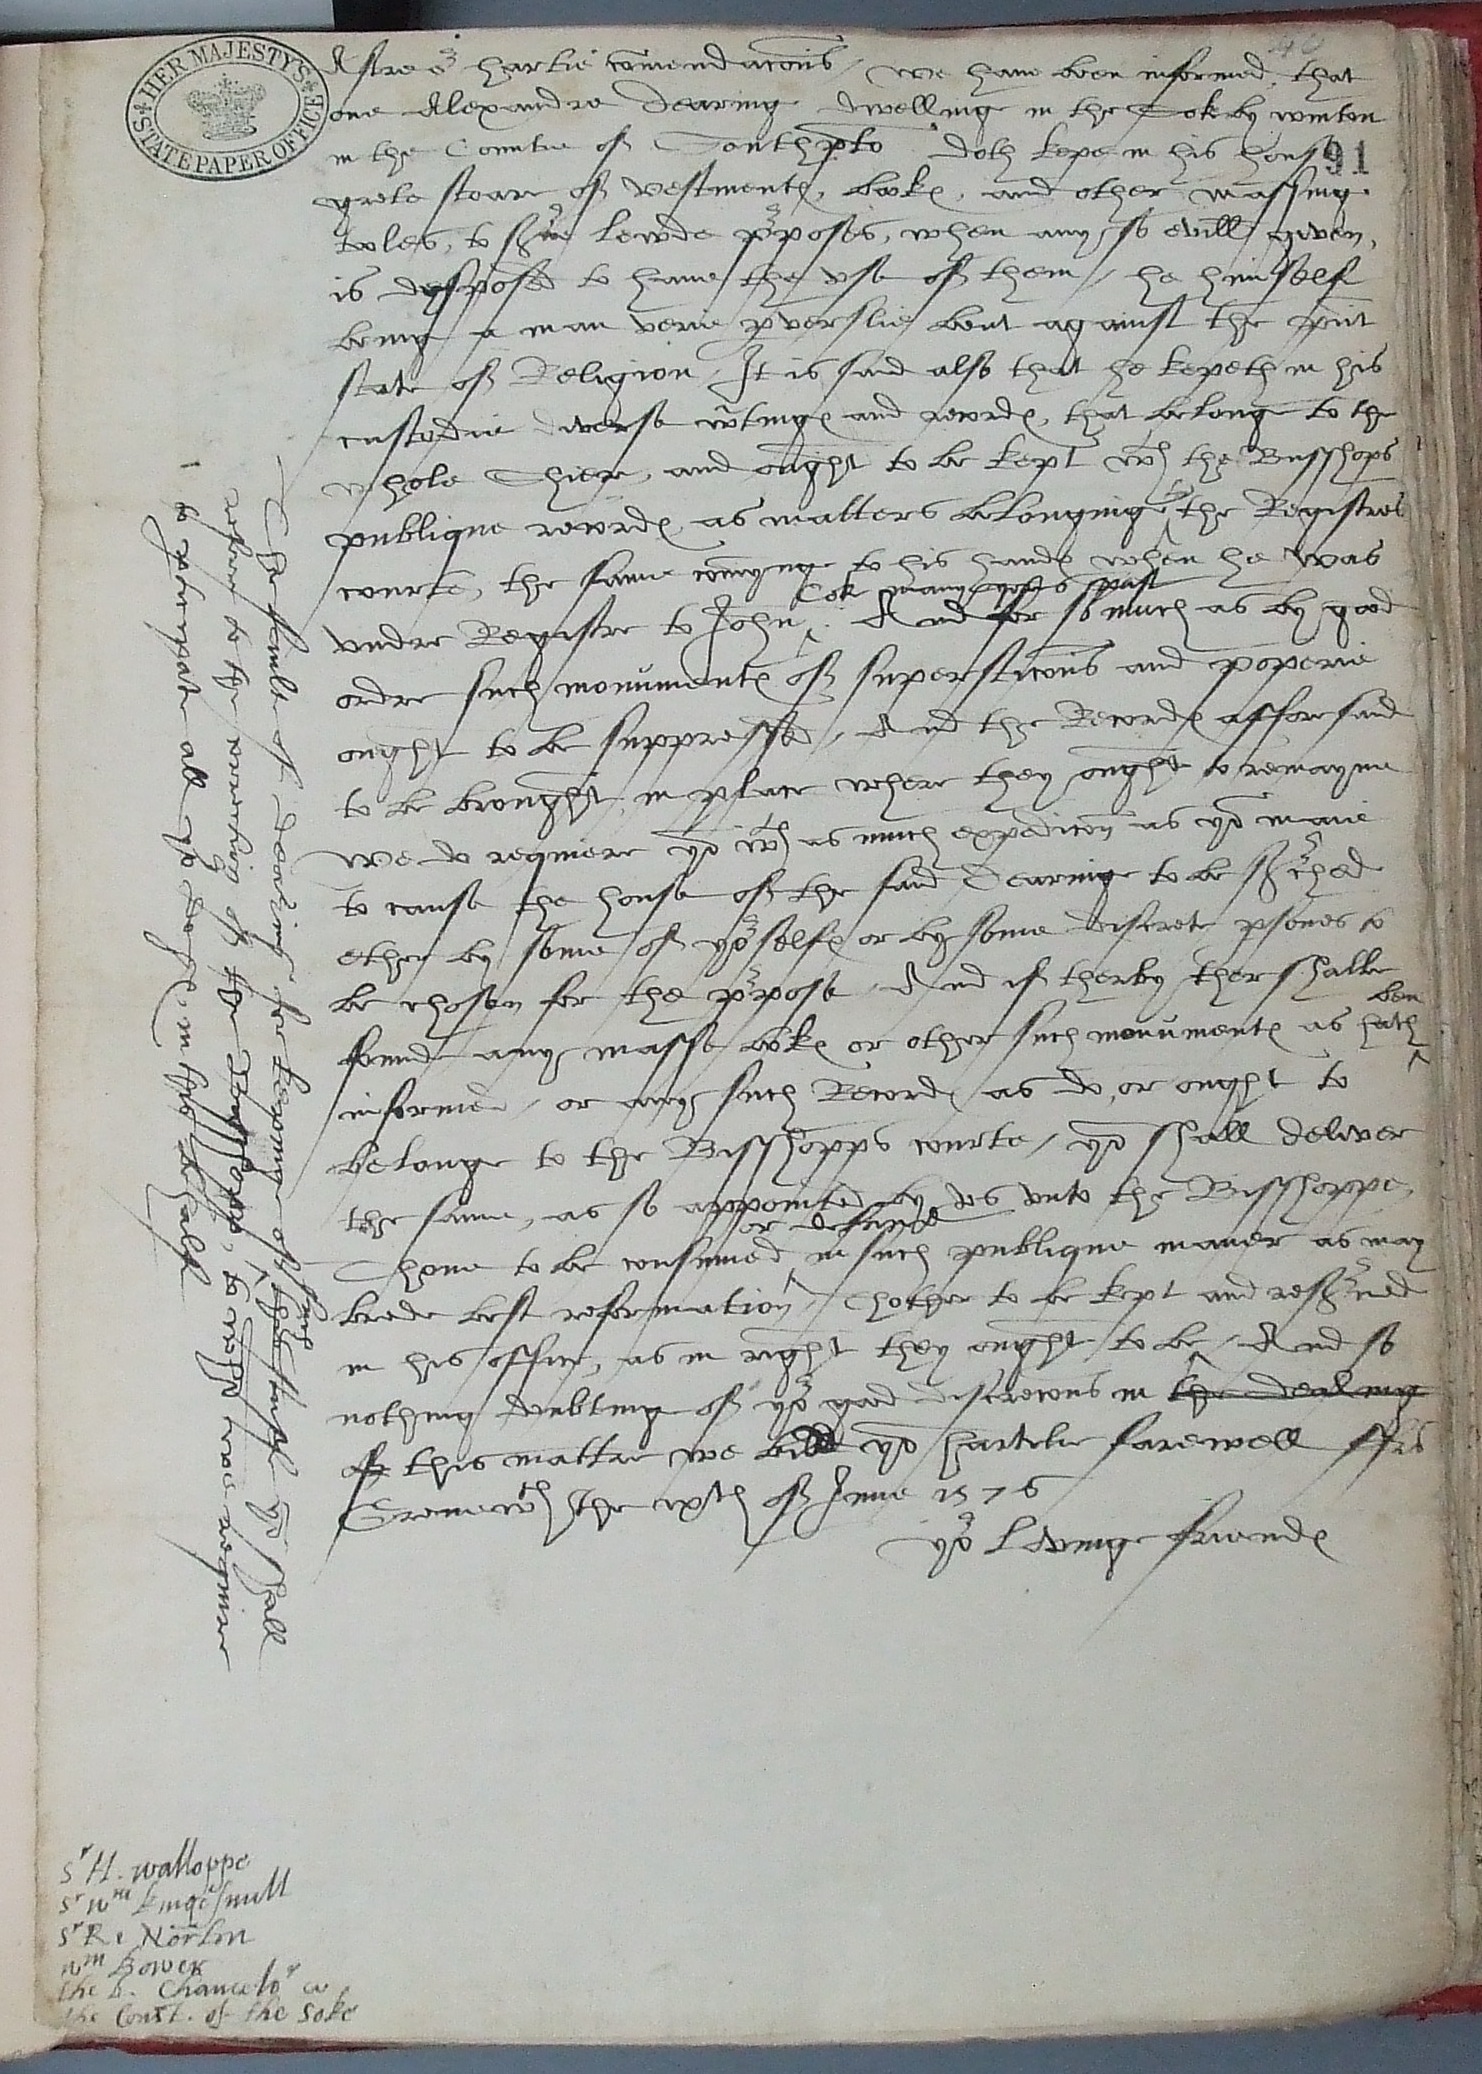 HER MAJESTY'S
STATE PAPER OFFICE
40
91
After oʳ hartie comendacons / we have ben informed, that
one Alexandre Dearing dwelling in the Sok by winton
in the Countie of Southpto doth kepe in his house
grete stoare of vestmentꝭ, bokꝭ, and other massing
toles, to sʳve lewde pʳposes, when any so evill given,
is dysposed to have the use of them / he himself
being a man verie pverslie bent against the pnt
state of Religion / It is said also that he kepeth in his
custodie diverse wrtingꝭ and recordꝭ, that belong to the
whole Shier, and ought to be kept wth the Busshops
publique recordꝭ, as matters belonging to the Registres
courte, the same comyng to his handꝭ when he was
undre Registre to John Cok many yeres past. And for so much as by good
ordre such monumentꝭ of supersticons and poperie
ought to be suppressed / And the Recordꝭ afforesaid
to be brought in place where they ought to remayne
we do requiere yoᵘ wth as much expedicon as yoᵘ maie
to cause the house of the said Dearing to be sʳched
ether by some of yoʳselfꝭ or by some discrete psones to
be chosen for the pʳpose / And if therby ther shalbe
found any masse bokꝭ or other such monumentꝭ as hath ben
informed / or any such Recordꝭ as do, or ought to
belonge to the Bisshopps courte / yoᵘ shall deliver
the same, as so appointed by us unto the Bisshoppe,
Thone to be consumed or defaced in such publique maner as may
brede best reformation / Thother to be kept and resʳved
in his office, as in right they ought to be / And so
nothing dubting of yoʳ good discrecons in the dealing
of this mattre we bidd yoᵘ hartelie farewell ffrō
Grenewᶜh the xᵗh of June 1576
yoʳ lovinge friendꝭ
The fault of Dearing for keping of such like stuff yoᵘ shall
referre to the ordering of the Bisshopp, to whom we requier
to participate all yoʳ doingꝭ in this behalf
Sʳ H. Walloppe
Sʳ Wᵐ Kingesmill
Sʳ R. Norton
Wᵐ Bower
the b. Chanceloʳ &
the Const. of the Soke